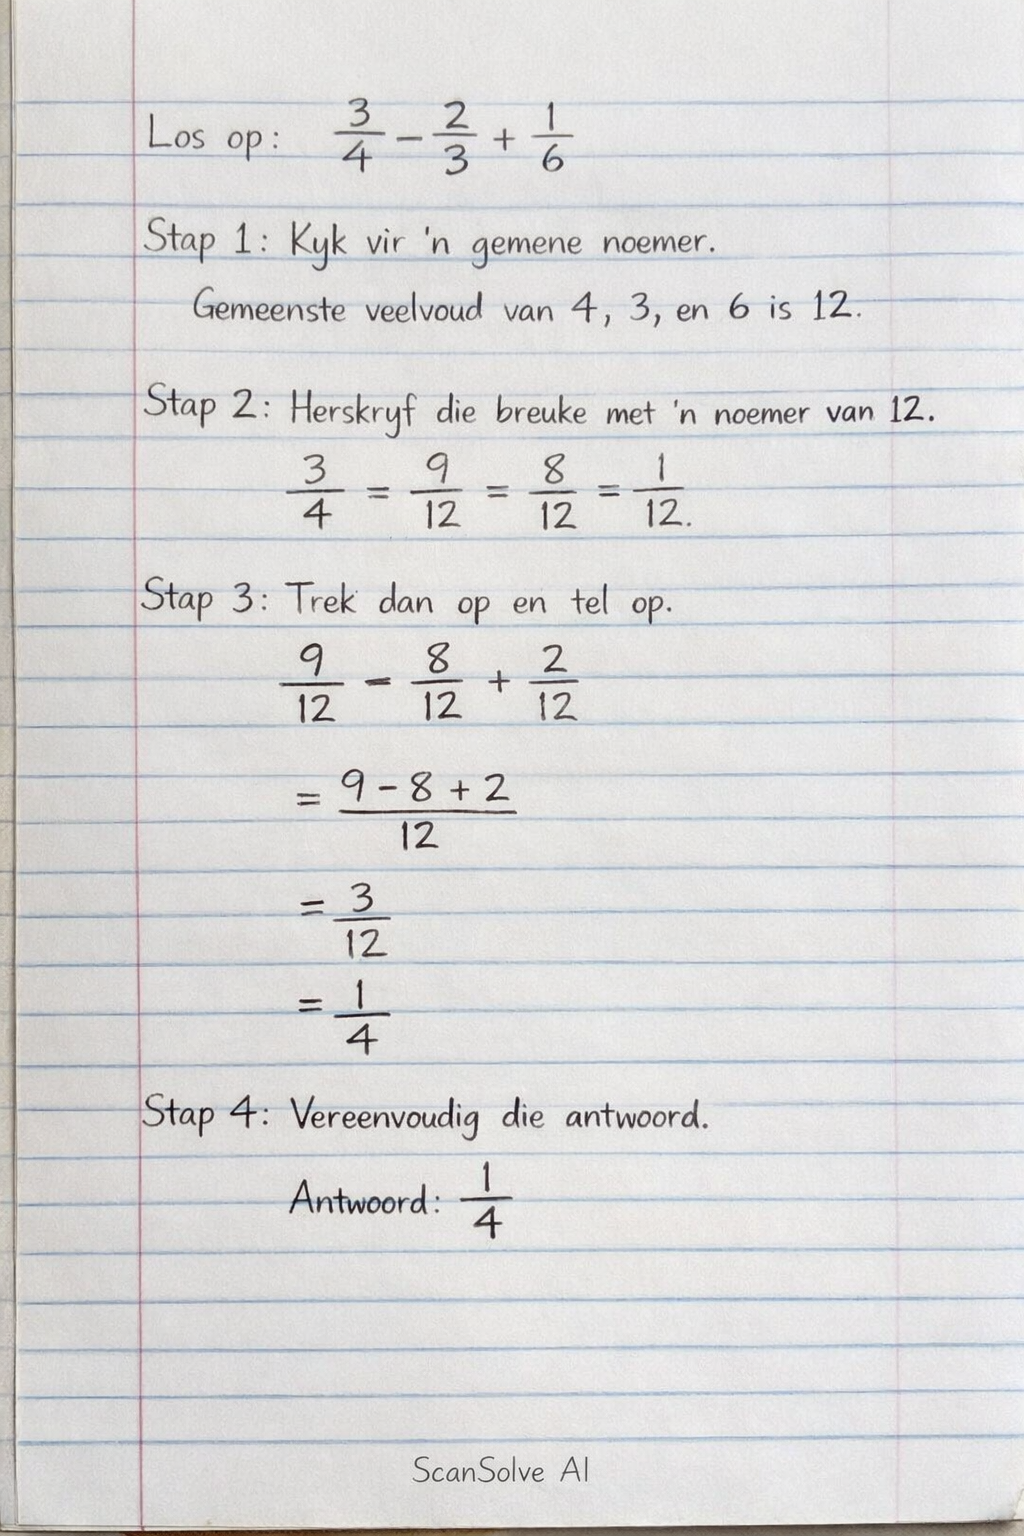 Los op: 3/4 - 2/3 + 1/6
Stap 1: Kyk vir 'n gemene noemer.
Gemeenste veelvoud van 4, 3, en 6 is 12.
Stap 2: Herskryf die breuke met 'n noemer van 12.
3/4 = 9/12 = 8/12 = 1/12.
Stap 3: Trek dan op en tel op.
9/12 - 8/12 + 2/12
= (9 - 8 + 2)/12
= 3/12
= 1/4
Stap 4: Vereenvoudig die antwoord.
Antwoord: 1/4
ScanSolve AI